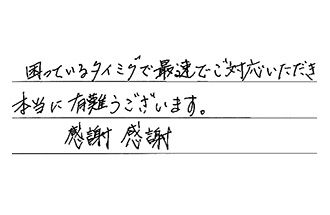 困っているタイミグで最速でご対応いただき
本当に有難うございます。
感謝 感謝